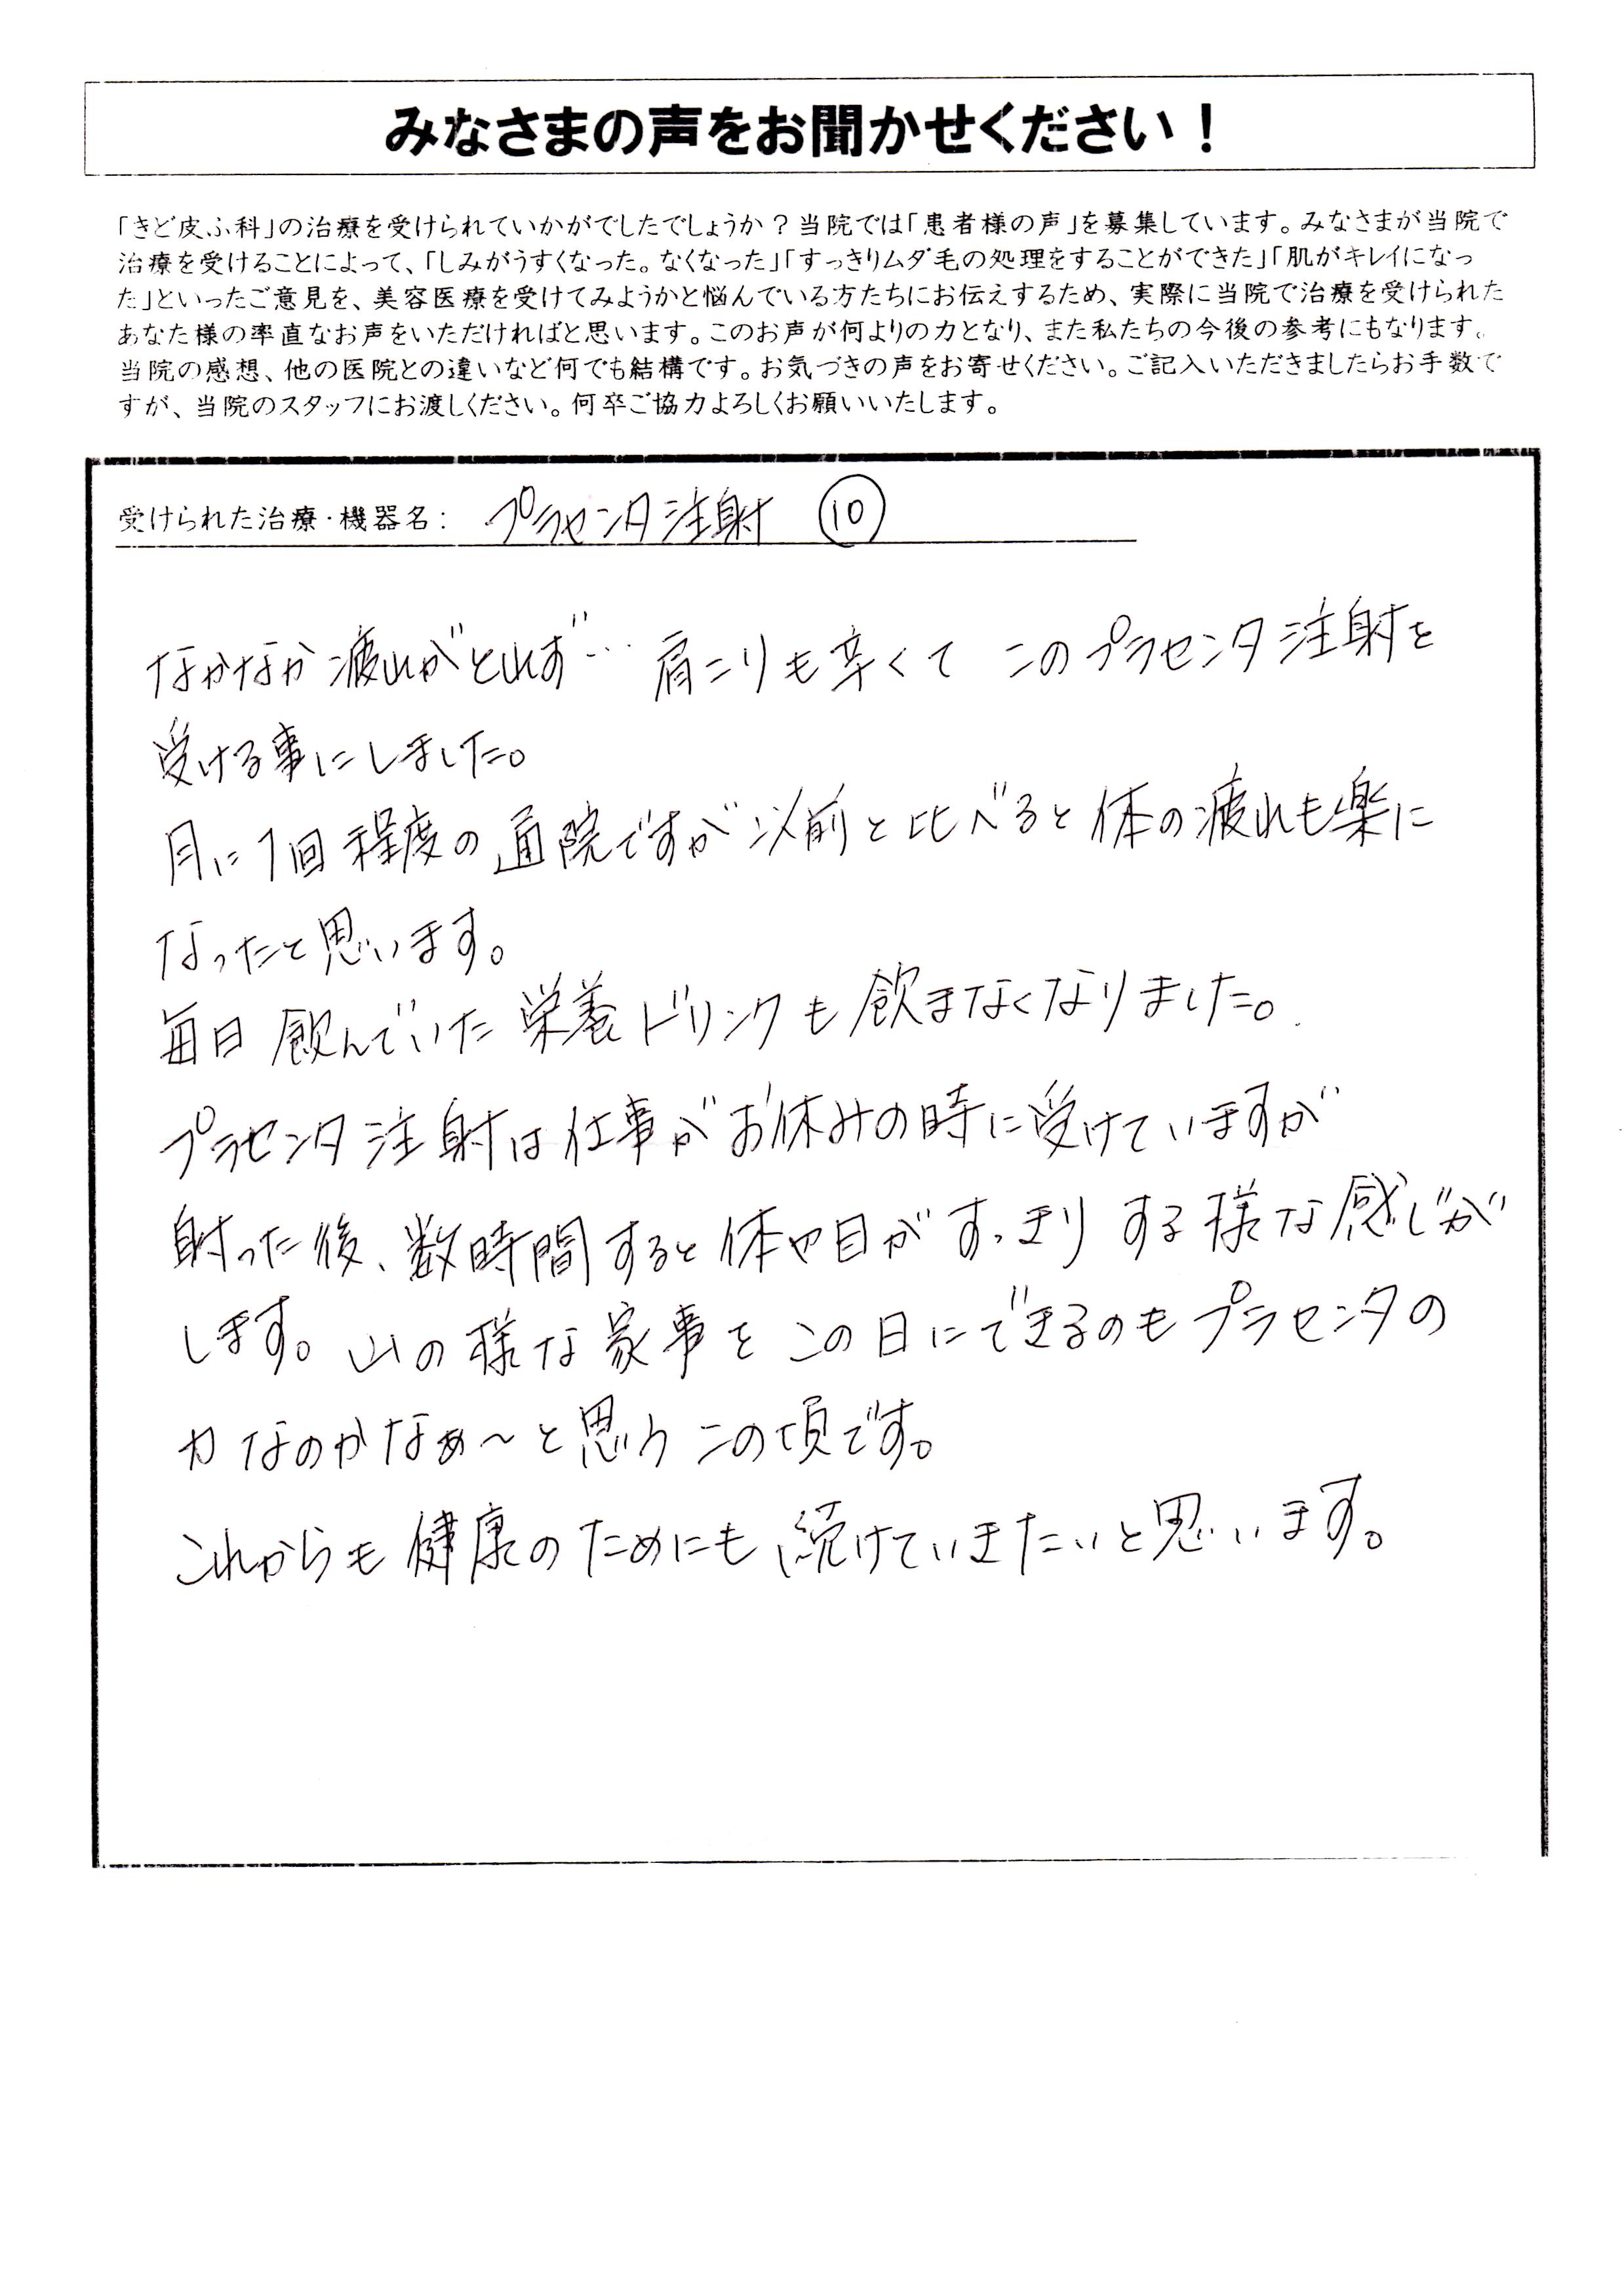 みなさまの声をお聞かせください！
「きど皮ふ科」の治療を受けられていかがでしたでしょうか？当院では「患者様の声」を募集しています。みなさまが当院で
治療を受けることによって、「しみがうすくなった。なくなった」「すっきりムダ毛の処理をすることができた」「肌がキレイになっ
た」といったご意見を、美容医療を受けてみようかと悩んでいる方たちにお伝えするため、実際に当院で治療を受けられた
あなた様の率直なお声をいただければと思います。このお声が何よりの力となり、また私たちの今後の参考にもなります。
当院の感想、他の医院との違いなど何でも結構です。お気づきの声をお寄せください。ご記入いただきましたらお手数で
すが、当院のスタッフにお渡しください。何卒ご協力よろしくお願いいたします。
受けられた治療・機器名： プラセンタ注射 ⑩
なかなか疲れがとれず… 肩こりも辛くて このプラセンタ注射を
受ける事にしました。
月に1回程度の通院ですが以前と比べると体の疲れも楽に
なったと思います。
毎日飲んでいた栄養ドリンクも飲まなくなりました。
プラセンタ注射は仕事がお休みの時に受けていますが
射った後、数時間すると体や目がすっきりする様な感じが
します。山の様な家事をこの日にできるのもプラセンタの
力なのかなぁ〜と思うこの頃です。
これからも健康のためにも続けていきたいと思います。